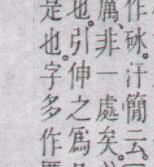 作砅。汗簡云
厲。非一處矣。
也。引伸之爲
是也。字多作